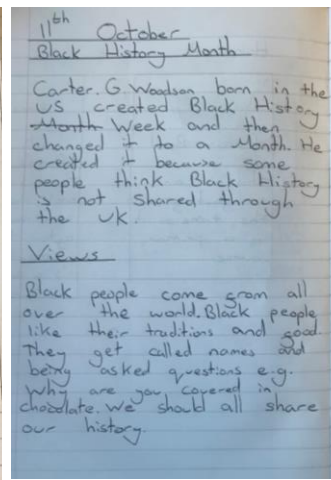 11th October
Black History Month
Carter. G. Woodson born in the
US created Black History
Month Week and then
changed it to a Month. He
created it because some
people think Black History
is not shared through
the UK.
Views
Black people come from all
over the world. Black people
like their traditions and good.
They get called names and
being asked questions e.g.
Why are you covered in
chocolate. We should all share
our history.